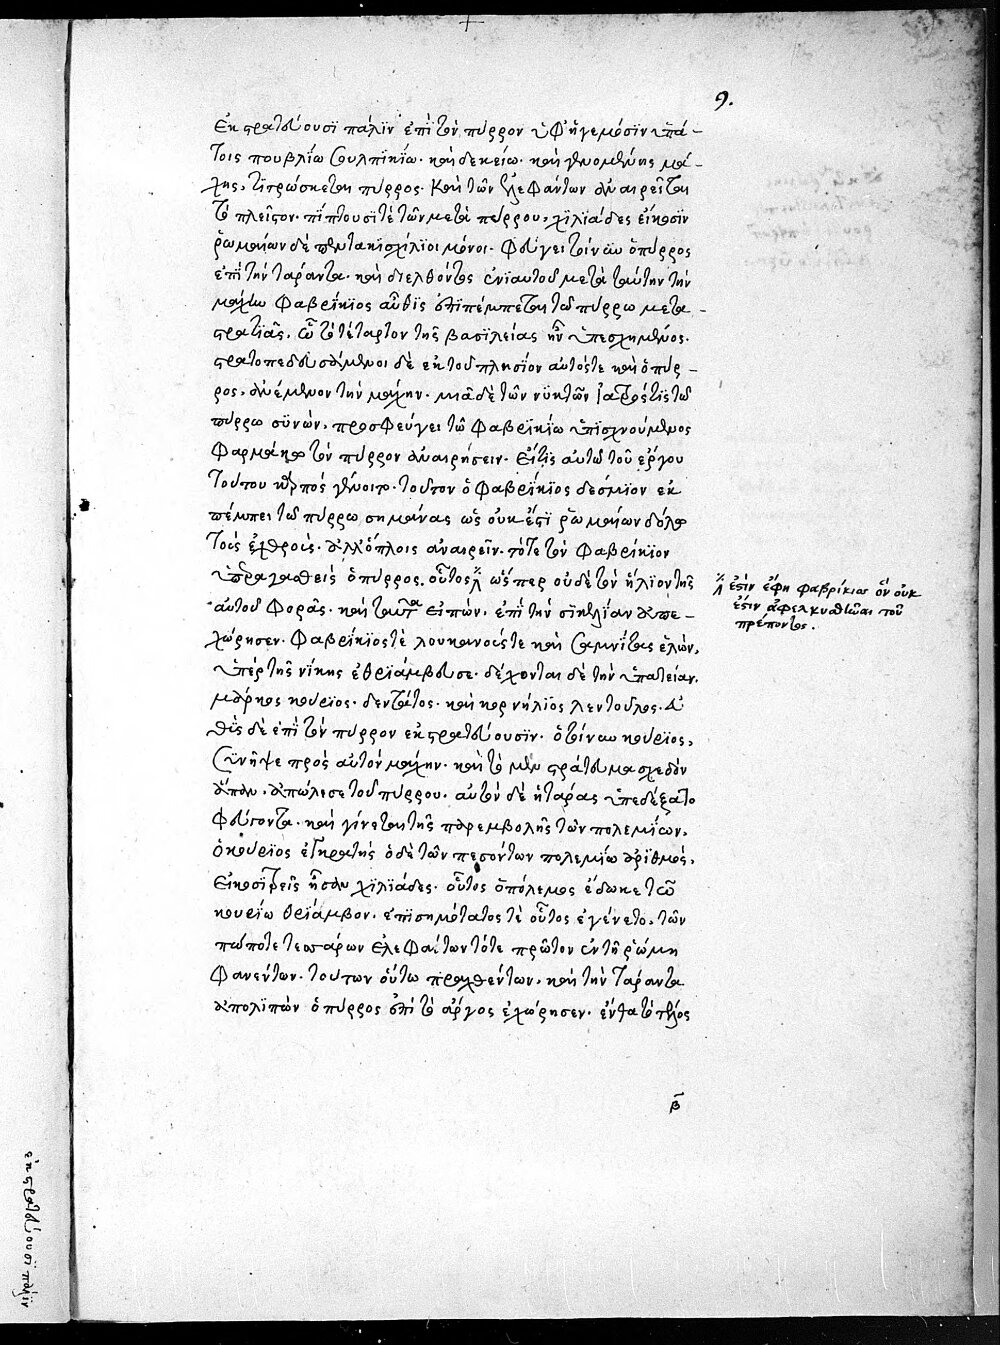 9.
Ἐκστρατεύουσι πάλιν ἐπὶ τὸν πύρρον ὑφ᾽ ἡγεμόσιν ὑπά-
τοις πουβλίω σουλπικίω. καὶ δεκείω. καὶ γενομένης μά-
χης, τιτρώσκεται πύρρος. καὶ τῶν ἐλεφάντων ἀναιρεῖται
τὸ πλεῖστον. πίπτουσί τε τῶν μετὰ πύρρου, χιλιάδες εἴκοσιν
ῥωμαίων δὲ πεντακισχίλιοι μόνοι. φεύγει τοίνυν ὁ πύρρος
ἐπὶ τὴν τάραντα. καὶ διελθόντος ἐνιαυτοῦ μετὰ ταύτην τὴν
μάχην φαβρίκιος αὖθις ἐπιπέμπεται τῶ πύρρω μετα-
στρατιᾶς, ὧ τὸ τέταρτον τῆς βασιλείας ἦν ὑπεσχημένος.
στρατοπεδευσάμενοι δὲ ἐκ τοῦ πλησίον αὐτός τε καὶ ὁ πύρ-
ρος, ἀνέμενον τὴν μάχην. μιᾶ δὲ τῶν νυκτῶν ἰατρός τις τῶ
πύρρω συνών, προσφεύγει τῶ φαβρικίω ὑπισχνούμενος
φαρμάκω τὸν πύρρον ἀναιρήσειν. εἴ τις αὐτῶ τοῦ ἔργου
τούτου καρπὸς γένοιτο. τοῦτον ὁ φαβρίκιος δέσμιον ἐκ
πέμπει τῶ πύρρω σημάνας ὡς οὐκ ἔστι ῥωμαίων δόλω
τοὺς ἐχθροὺς. ἀλλ᾽ ὅπλοις ἀναιρεῖν. τότε τὸν φαβρίκιον
ὑπεραγασθεὶς ὁ πύρρος. οὗτος ὥσπερ οὐδὲ τὸν ἥλιον τῆς
αὐτοῦ φορᾶς. καὶ ταῦτα εἰπών, ἐπὶ τὴν σικελίαν ἀπε-
χώρησεν. φαβρίκιός τε λουκανούς τε καὶ σαμνίτας ἑλών,
ὑπὲρ τῆς νίκης ἐθριάμβευσε. δέχονται δὲ τὴν ὑπατείαν,
μάρκος κούριος. δεντάτος. καὶ κορνήλιος λεντοῦλος. αὖ
θις δὲ ἐπὶ τὸν πύρρον ἐκστρατεύουσιν. ὁ τοίνυν κούριος,
συνῆψε πρὸς αὐτὸν μάχην. καὶ τὸ μὲν στράτευμα σχεδὸν
ἅπαν. ἀπώλεσε τοῦ πύρρου. αὐτὸν δὲ ἡ τάρας ὑπεδέξατο
φεύγοντα. καὶ γίνεται τῆς παρεμβολῆς τῶν πολεμίων,
ὁ κούριος ἐγκρατὴς ὁ δὲ τῶν πεσόντων πολεμίω ἀριθμός,
εἰκοσιτρεῖς ἦσαν χιλιάδες. οὗτος ὁ πόλεμος ἔδωκε τῶ
κουρίω θρίαμβον. ἐπισημότατός τε οὗτος ἐγένετο. τῶν
πώποτε τεσσάρων ἐλεφάντων τότε πρῶτον ἐν τῇ ῥώμη
φανέντων. τούτων οὕτω πραχθέντων, καὶ τὴν τάραντα
ἀπολιπὼν ὁ πύρρος ἐπὶ τὸ ἄργος ἐχώρησεν. ἔνθα τὸ τέλος
ἐστὶν ἔφη φαβρίκιος ὃν οὐκ
ἔστιν ἀφελκυσθῆναι τοῦ
πρέποντος.
β
ἐκστρατεύουσι πάλιν